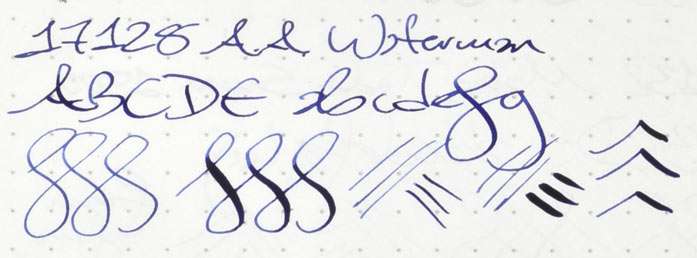 17128 A.A. Waterman
ABCDE abcdefg